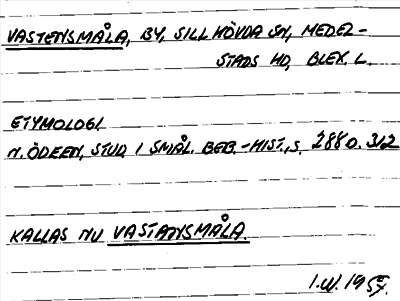 VASTENSMÅLA, BY, SILLHÖVDA SN, MEDEL-
STADS HD, BLEK. L.
ETYMOLOGI
N. ÖDEEN, STUD. I SMÅL. BEB.-HIST., S. 288 O. 312
KALLAS NU VASTANSMÅLA
I.W. 1957.